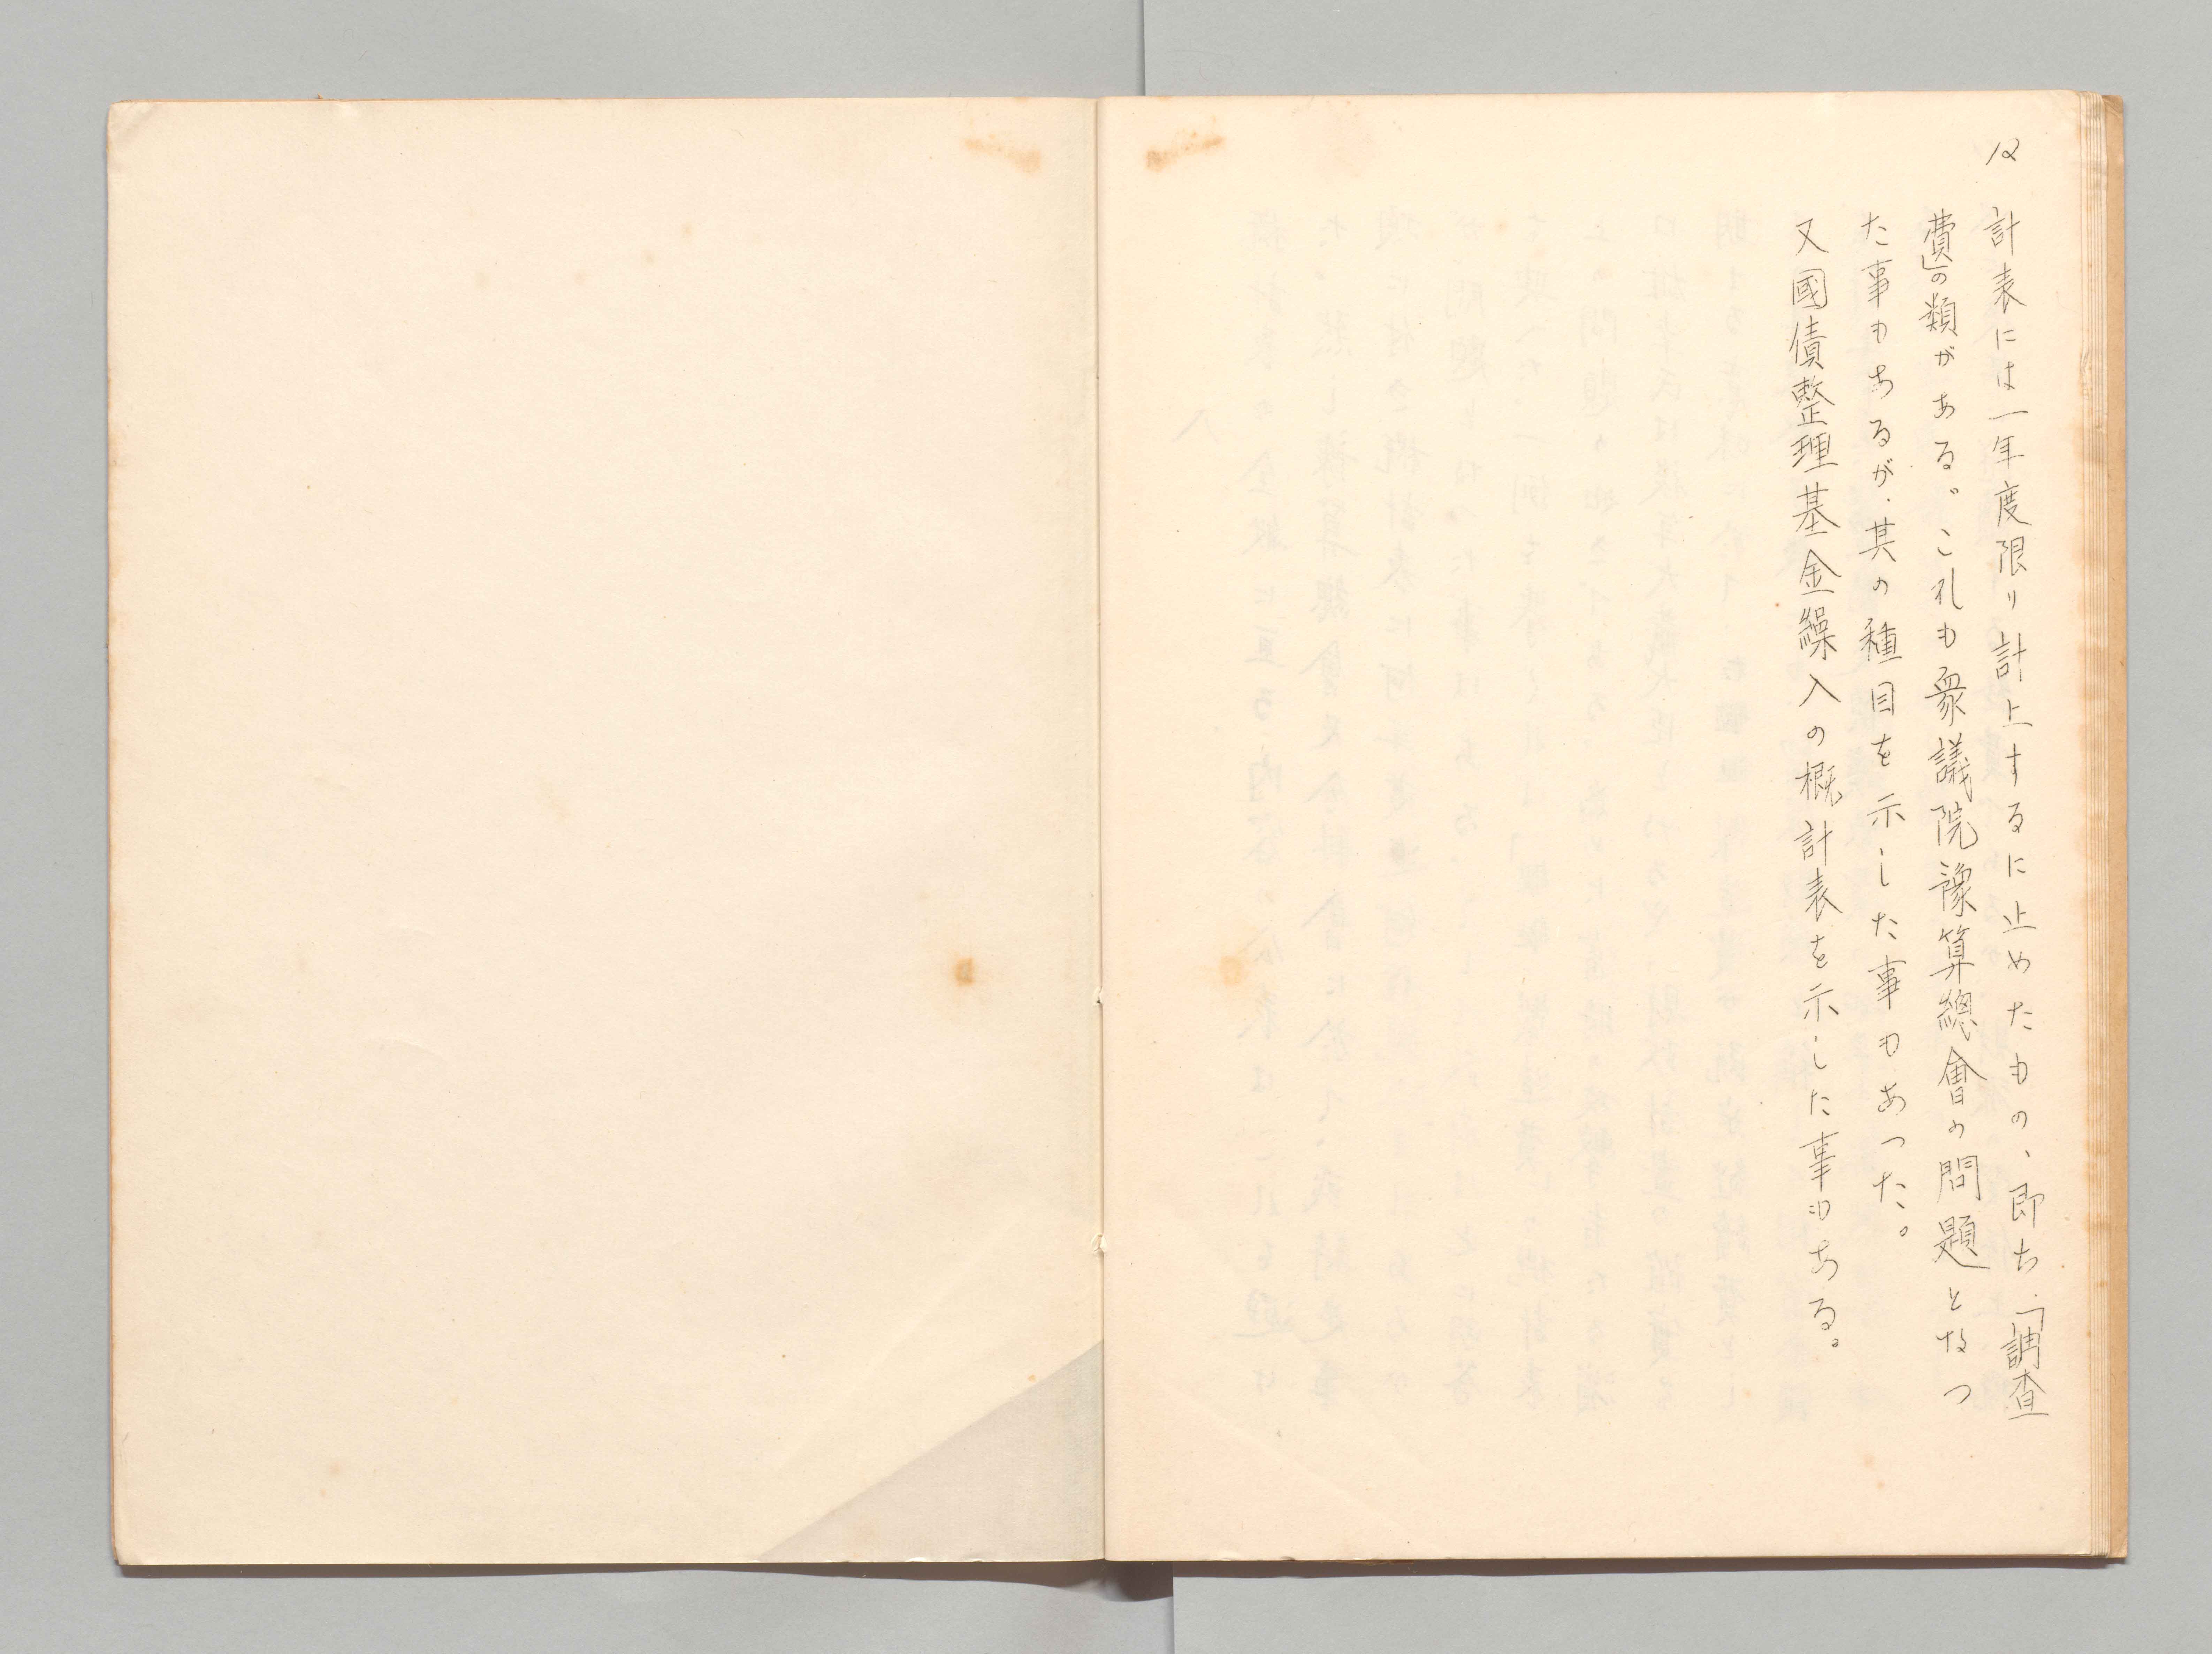 12
計表には一年度限り計上するに止めたもの、即ち「調査
費」の類がある。これも衆議院豫算總會の問題となつ
た事もあるが、其の種目を示した事もあつた。
又國債整理基金繰入の概計表を示した事もある。